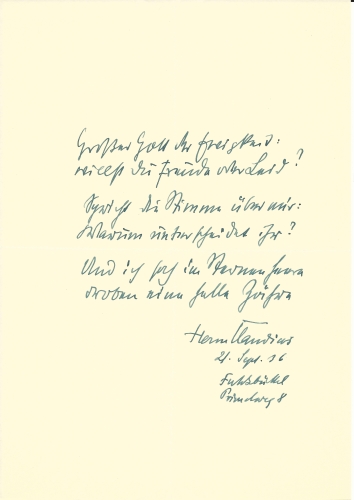 Großer Gott der Ewigkeit:
willst du Freude oder Leid?
Spricht die Stimme über mir:
Warum unterscheidet ihr?
Und ich sah im Sternenheere
droben eine helle Zähre
Hermann Claudius
21. Sept. 36
Fuhlsbüttel